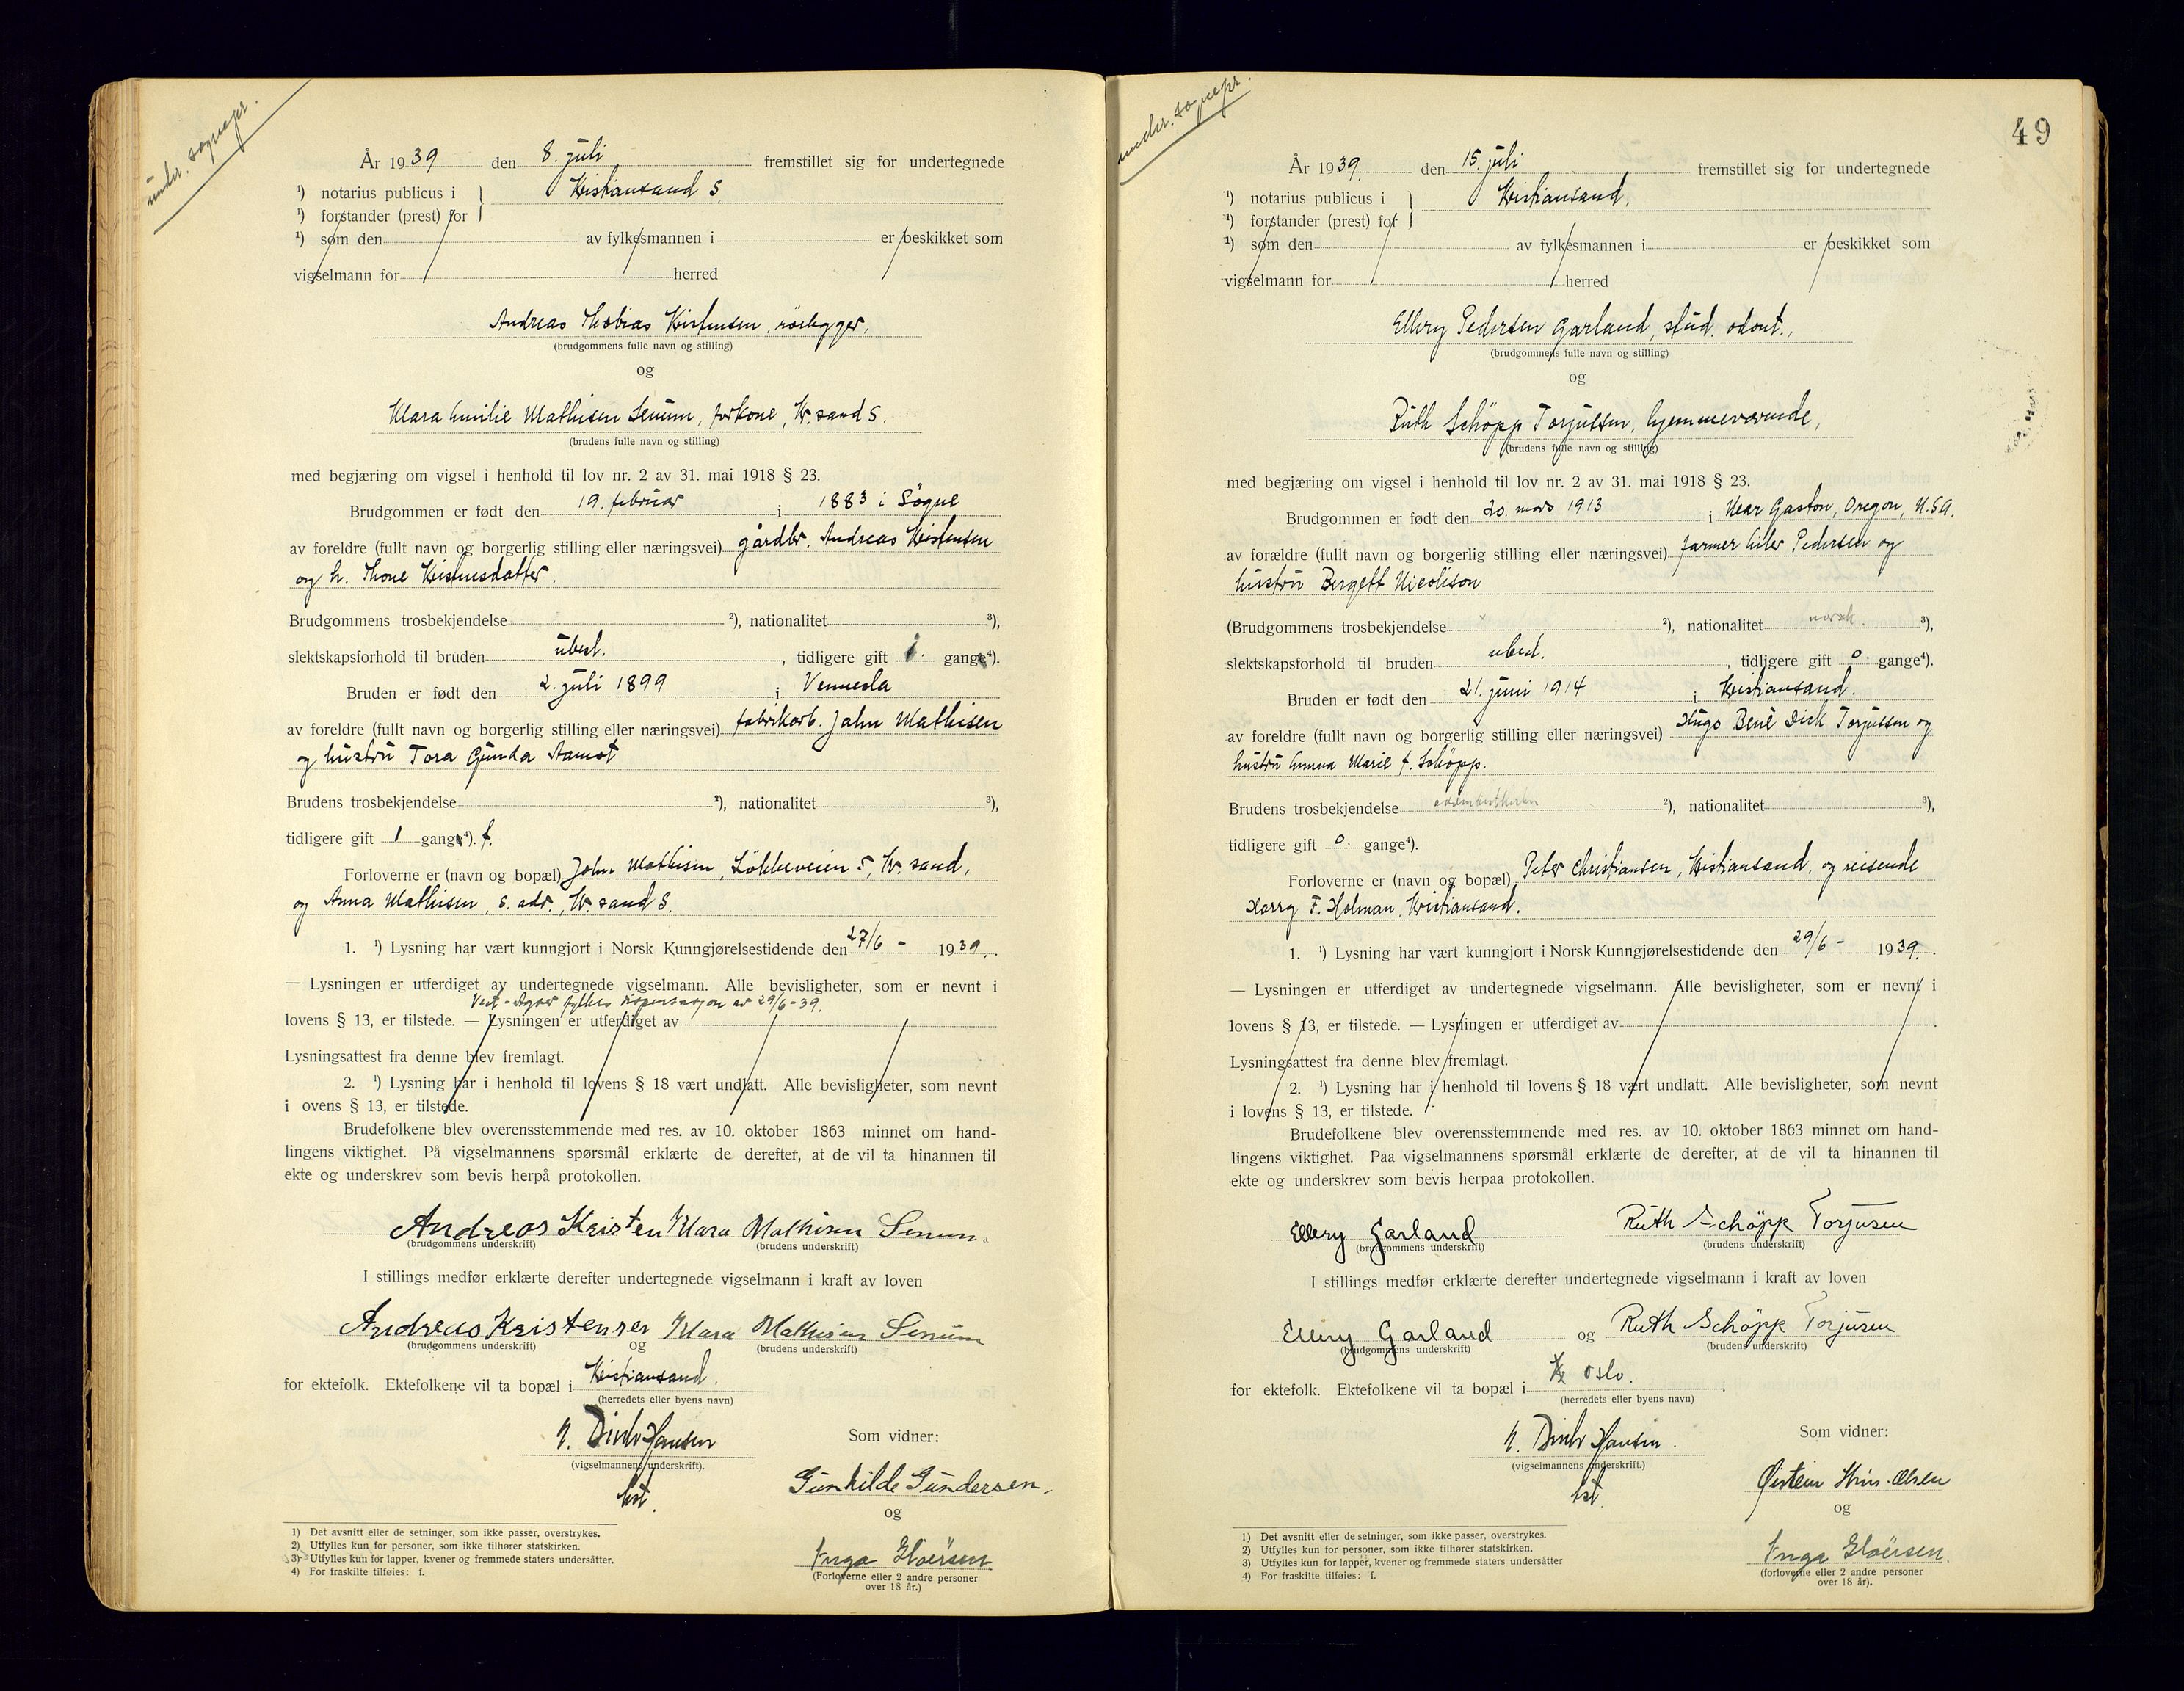 under. sognepr.
År 1939 den 8. juli fremstillet sig for undertegnede
¹) notarius publicus i Kristiansand S.
¹) forstander (prest) for
¹) som den av fylkesmannen i er beskikket som
vigselmann for herred
Andreas Thobias Kristensen, rørlegger,
(brudgommens fulle navn og stilling)
og
Klara Emilie Mathisen Senum, forkone, Kr.sand S.
(brudens fulle navn og stilling)
med begjæring om vigsel i henhold til lov nr. 2 av 31. mai 1918 § 23.
Brudgommen er født den 19. februar i 1883 i Søgne
av foreldre (fullt navn og borgerlig stilling eller næringsvei) gårdbr. Andreas Kristensen
og h. Thone Kristensdatter.
Brudgommens trosbekjendelse ²), nationalitet ³),
slektskapsforhold til bruden ubesl. , tidligere gift 1. gange⁴).
Bruden er født den 2. juli 1899 i Vennesla
av foreldre (fullt navn og borgerlig stilling eller næringsvei) fabrikarb. John Mathisen
og hustru Tora Gunda Aamot
Brudens trosbekjendelse ²), nationalitet ³),
tidligere gift 1 gang⁴). f.
Forloverne er (navn og bopæl) John Mathisen, Løkkeveien 5, Kr.sand,
og Anna Mathisen, s. adr., Kr.sand S.
1. ¹) Lysning har vært kunngjort i Norsk Kunngjørelsestidende den 27/6 - 1939.
— Lysningen er utferdiget av undertegnede vigselmann. Alle bevisligheter, som er nevnt i
Vest-Agder fylkes dispensasjon av 29/6-39.
lovens § 13, er tilstede. — Lysningen er utferdiget av
Lysningsattest fra denne blev fremlagt.
2. ¹) Lysning har i henhold til lovens § 18 vært undlatt. Alle bevisligheter, som nevnt
i ovens § 13, er tilstede.
Brudefolkene blev overensstemmende med res. av 10. oktober 1863 minnet om hand-
lingens viktighet. På vigselmannens spørsmål erklærte de derefter, at de vil ta hinannen til
ekte og underskrev som bevis herpå protokollen.
Andreas Kristen Klara Mathisen Senum.
(brudgommens underskrift) (brudens underskrift)
I stillings medfør erklærte derefter undertegnede vigselmann i kraft av loven
Andreas Kristensen Klara Mathisen Senum
(brudgommens underskrift) og (brudens underskrift)
for ektefolk. Ektefolkene vil ta bopæl i Kristiansand.
(herredets eller byens navn)
Hansen Som vidner:
(vigselmannens underskrift).
Gunhilde Gundersen.
kst.
og
Inga Gloersen
(Forloverne eller 2 andre personer
over 18 år.)
1) Det avsnitt eller de setninger, som ikke passer, overstrykes.
2) Utfylles kun for personer, som ikke tilhører statskirken.
3) Utfylles kun for lapper, kvener og fremmede staters undersåtter.
4) For fraskilte tilføies: f.
under. sognepr.
49
År 1939. den 15. juli fremstillet sig for undertegnede
¹) notarius publicus i Kristiansand.
¹) forstander (prest) for
¹) som den av fylkesmannen i er beskikket som
vigselmann for herred
Ellery Pedersen Garland, stud. odont.,
(brudgommens fulle navn og stilling)
og
Ruth Schöpp Torjussen, hjemmeværende,
(brudens fulle navn og stilling)
med begjæring om vigsel i henhold til lov nr. 2 av 31. mai 1918 § 23.
Brudgommen er født den 20. mars 1913 i Near Gaston, Oregon, U.S.A.
av forældre (fullt navn og borgerlig stilling eller næringsvei) farmer Eiler Pedersen og
hustru Bergett Nicolison
(Brudgommens trosbekjendelse ²), nationalitet norsk. ³),
slektskapsforhold til bruden ubesl. , tidligere gift 0. gange⁴).
Bruden er født den 21. juni 1914 i Kristiansand.
av foreldre (fullt navn og borgerlig stilling eller næringsvei) Hugo Dick Torjussen og
hustru Emma Marie f. Schöpp.
Brudens trosbekjendelse ²), nationalitet ³),
tidligere gift 0. gange⁴).
Forloverne er (navn og bopæl) Peter Christiansen, Kristiansand, og reisende
Harry F. Holman, Kristiansand.
1. ¹) Lysning har vært kunngjort i Norsk Kunngjørelsestidende den 29/6 - 1939.
— Lysningen er utferdiget av undertegnede vigselmann. Alle bevisligheter, som er nevnt i
lovens § 13, er tilstede. — Lysningen er utferdiget av
Lysningsattest fra denne blev fremlagt.
2. ¹) Lysning har i henhold til lovens § 18 vært undlatt. Alle bevisligheter, som nevnt
i lovens § 13, er tilstede.
Brudefolkene blev overensstemmende med res. av 10. oktober 1863 minnet om hand-
lingens viktighet. Paa vigselmannens spørsmål erklærte de derefter, at de vil ta hinannen til
ekte og underskrev som bevis herpaa protokollen.
Ellery Garland Ruth Schöpp Torjusen
(brudgommens underskrift) (brudens underskrift)
I stillings medfør erklærte derefter undertegnede vigselmann i kraft av loven
Ellery Garland og Ruth Schöpp Torjusen
(brudgommens underskrift) (brudens underskrift)
for ektefolk. Ektefolkene vil ta bopæl i Oslo.
(herredets eller byens navn)
Hansen. Som vidner:
(vigselmannens underskrift.)
kst.
Øistein
og
Inga Gloersen.
(forloverne eller 2 andre personer
over 18 år).
1) Det avsnitt eller de setninger, som ikke passer, overstrykes.
2) Utfylles kun for personer, som ikke tilhører statskirken.
3) Utfylles kun for lapper, kvener og fremmede staters undersåtter
4) For fraskilte tilføies: f.